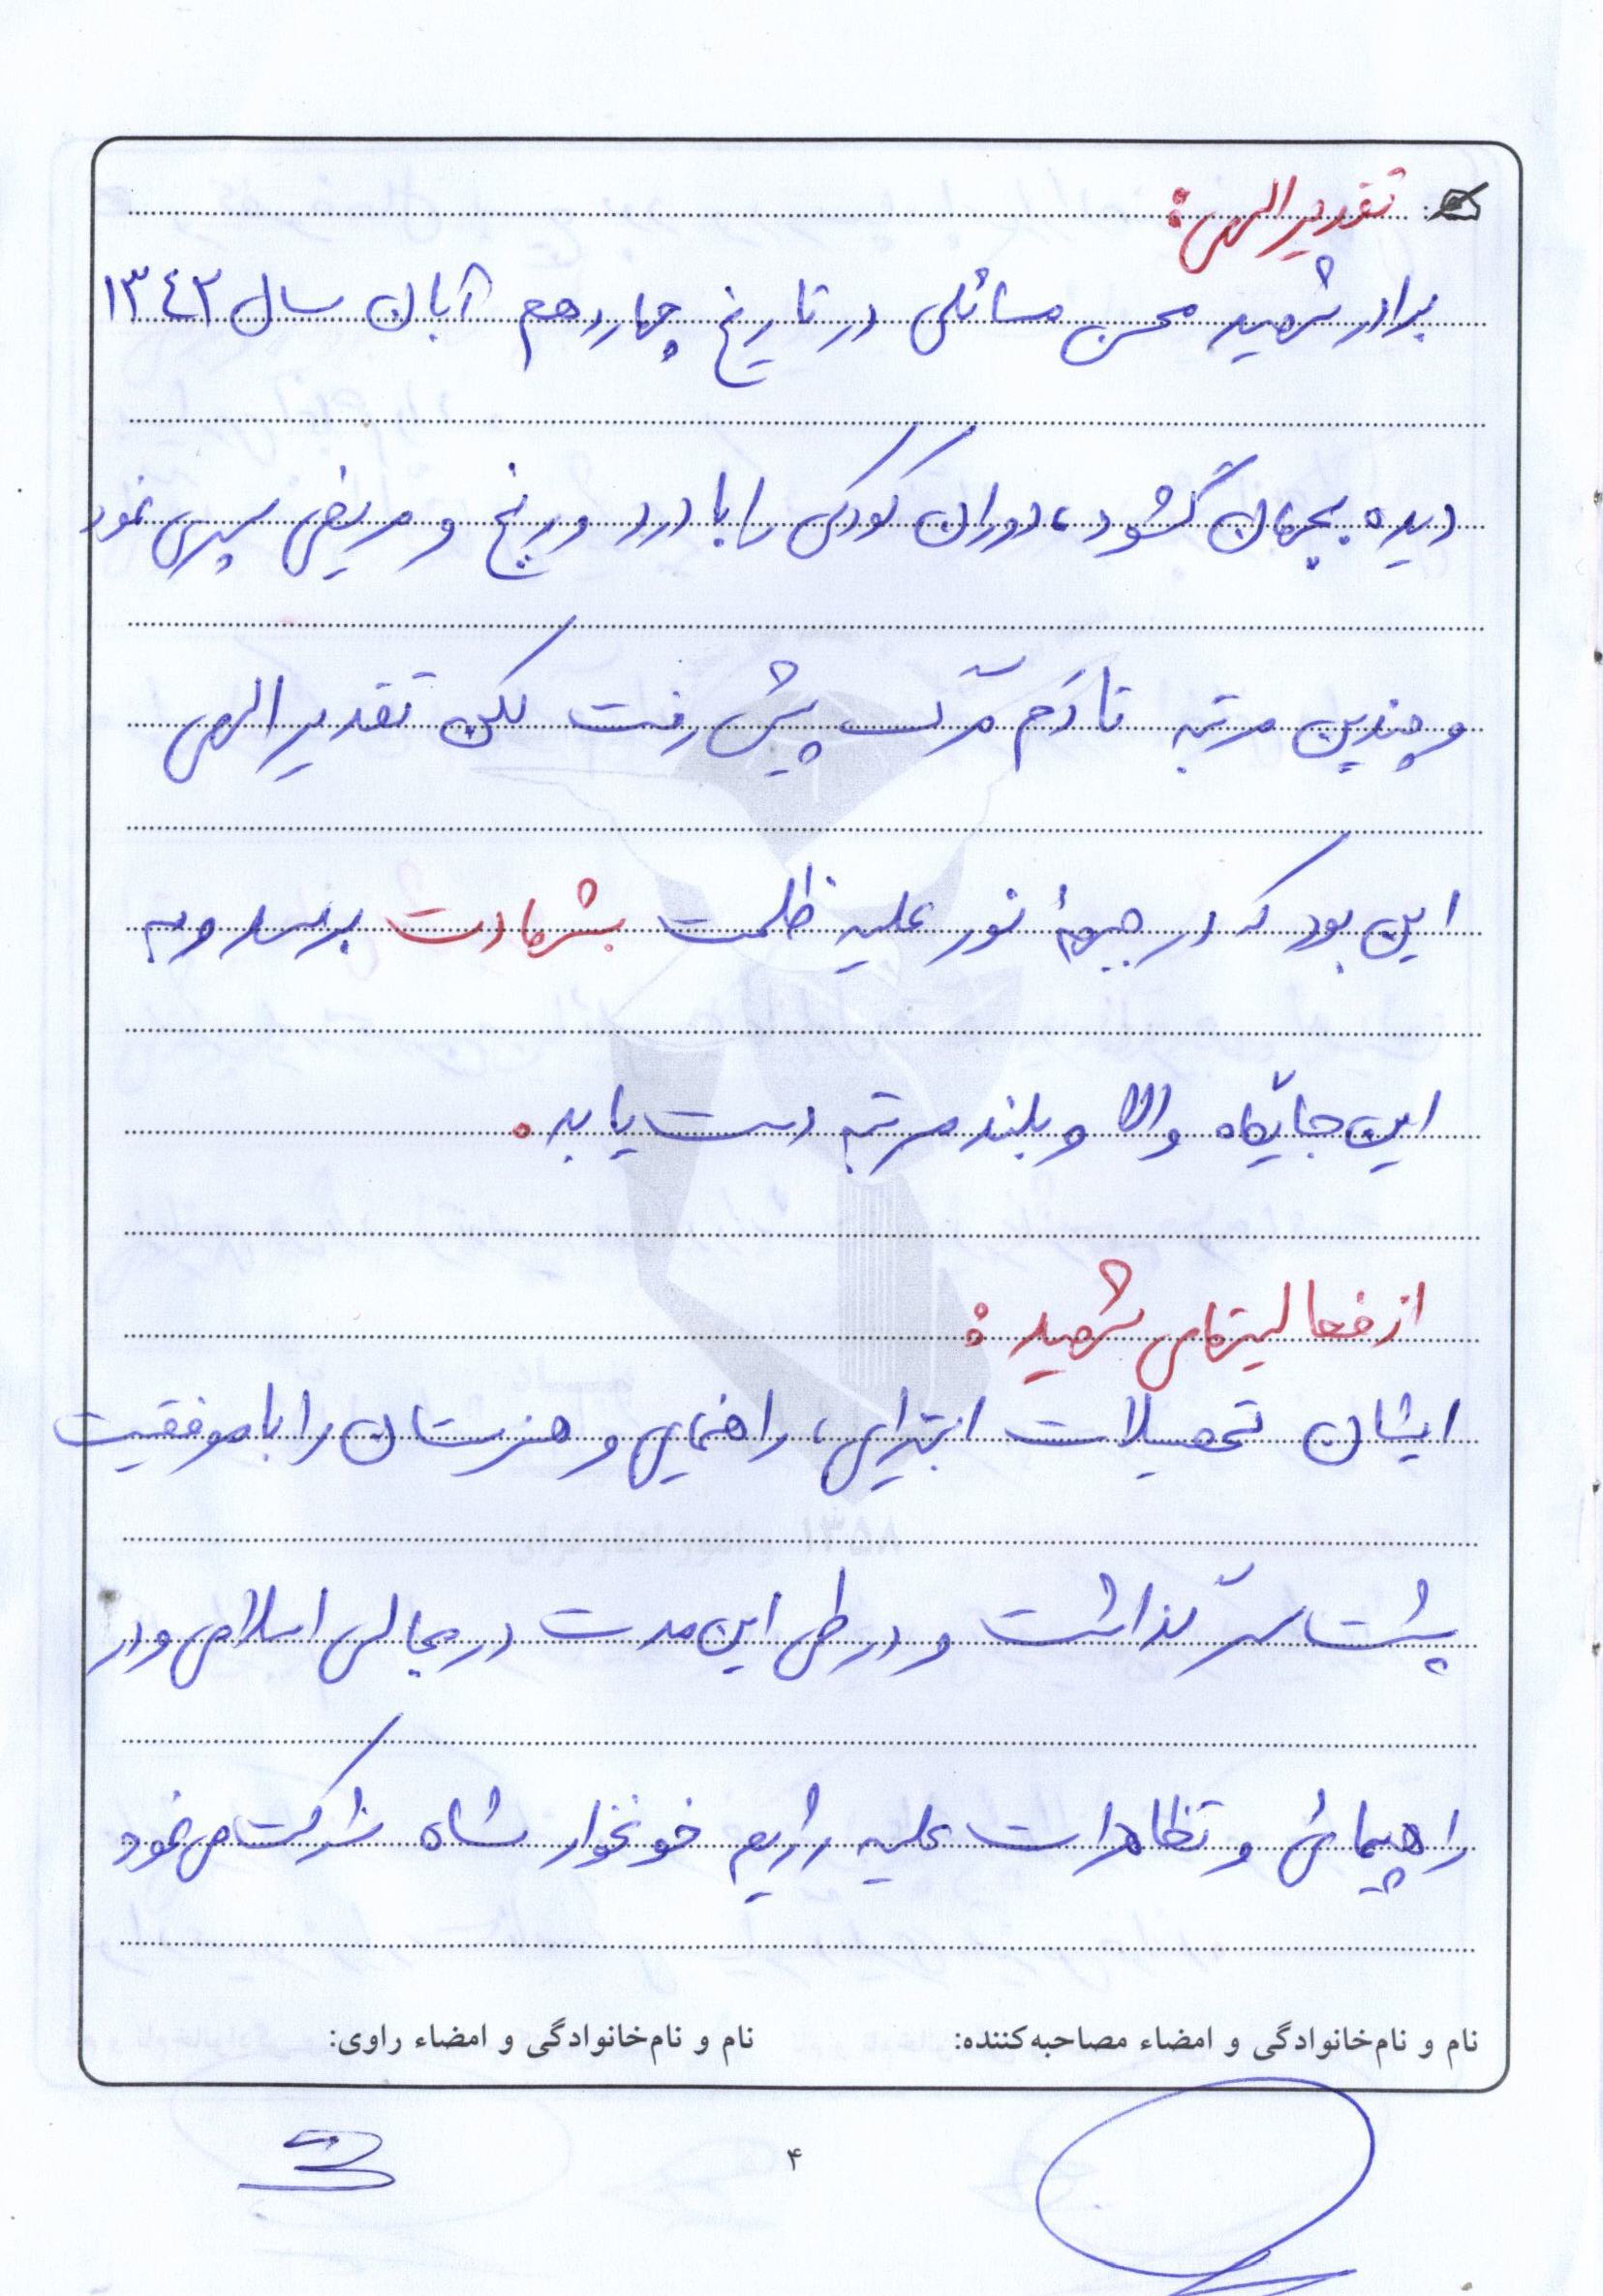 تقدیر الهی:
برادر شهید محسن مسائلی در تاریخ چهاردهم آبان سال ۱۳۴۲
دیده بجهان گشود، دوران کودکی را با درد و رنج و مریضی سپری نمود
و چندین مرتبه تا دَم مرگ پیش رفت لکن تقدیر الهی
این بود که در جبههٔ نور علیه ظلمت بشهادت برسد و به
این جایگاه والا و بلند مرتبه دست یابد.
از فعالیتهای شهید:
ایشان تحصیلات ابتدایی، راهنمایی و هنرستان را با موفقیت
پشت سر گذاشت و در طی این مدت در مجالس اسلامی و در
راهپیمائی و تظاهرات علیه رژیم خونخوار شاه شرکت می نمود
نام و نام‌خانوادگی و امضاء مصاحبه‌کننده: نام و نام‌خانوادگی و امضاء راوی:
۴